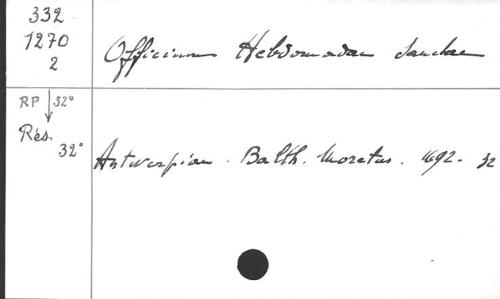 332
1270
2
Officium Hebdomadae Sanctae
RP ↓ 32°
Rés.
32°
Antverpiae. Balth. Moretus. 1692. 32